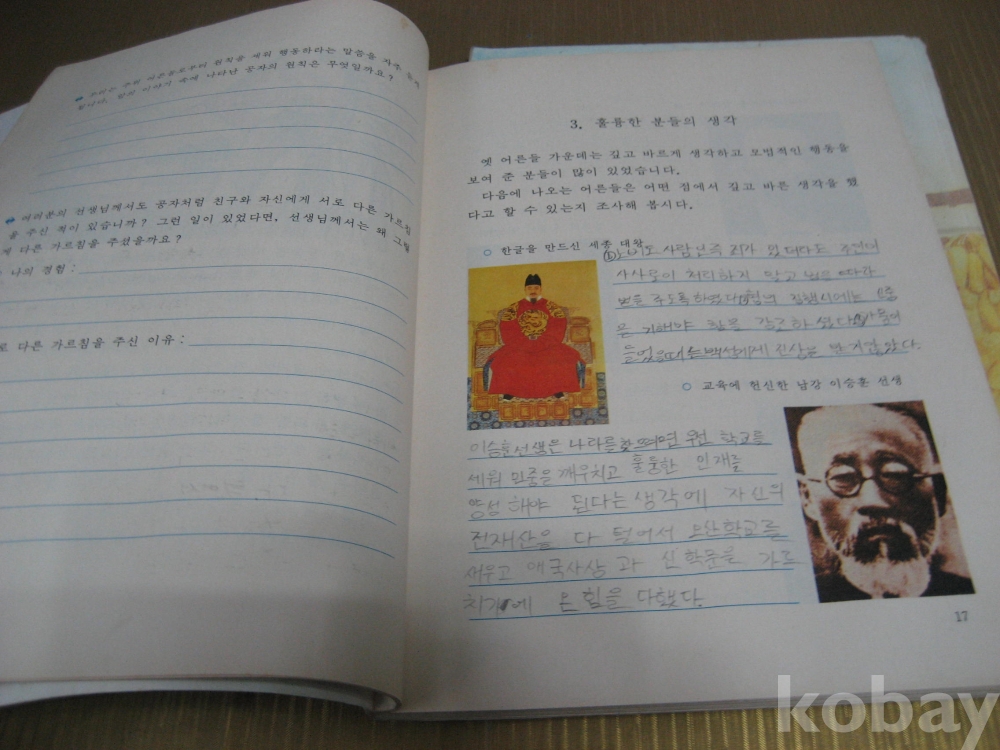 우리는 우리 어른들로부터 원칙을 세워 행동하라는 말씀을 자주 듣게
됩니다. 앞의 이야기 속에 나타난 공자의 원칙은 무엇일까요?
여러분의 선생님께서도 공자처럼 친구와 자신에게 서로 다른 가르침
을 주신 적이 있습니까? 그런 일이 있었다면, 선생님께서는 왜 그렇
게 다른 가르침을 주셨을까요?
나의 경험:
다른 가르침을 주신 이유:
3. 훌륭한 분들의 생각
옛 어른들 가운데는 깊고 바르게 생각하고 모범적인 행동을
보여 준 분들이 많이 있었습니다.
다음에 나오는 어른들은 어떤 점에서 깊고 바른 생각을 했
다고 할 수 있는지 조사해 봅시다.
한글을 만드신 세종 대왕
노비도 사람인즉 죄가 있더라도 주인이
사사로이 처리하지 말고
벌을 주도록하였다
교육에 헌신한 남강 이승훈 선생
이승훈선생은 나라를 찾으려면 우선 학교를
세워 민중을 깨우치고 훌륭한 인재를
양성해야 된다는 생각에 자신의
전재산을 다 털어서 오산학교를
세우고 애국사상과 신학문을 가르
치기에 온힘을 다했다.
17
kobay